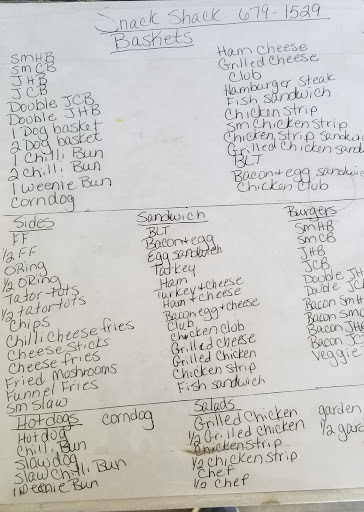 Snack Shack 679-1529
Baskets
SmHB
SmCB
JHB
JCB
Double JCB
Double JHB
1 Dog basket
2 Dog basket
1 Chili Bun
2 chili Bun
1 weenie Bun
Corndog
Ham cheese
Grilled cheese
Club
Hamburger steak
Fish sandwich
Chicken strip
Sm Chicken strip
Chicken strip sandwi
Grilled Chicken sand
BLT
Bacon+egg sandwic
Chicken Club
Sides
FF
1/2 FF
ORing
1/2 ORing
Tator tots
1/2 tator tots
Chips
Chilli Cheese fries
Cheese sticks
Cheese fries
Fried Moshrooms
Funnel Fries
Sm slaw
Sandwich
BLT
Bacon+egg
Egg sandwich
Ham
Turkey+cheese
Ham+cheese
Bacon egg+cheese
Club
Chicken club
Grilled cheese
Grilled Chicken
Chicken strip
Fish sandwich
Burgers
SmHB
SmCB
JHB
JCB
Double JH
Double JC
Bacon SmH
Bacon Smc
Bacon JHB
Bacon JC
Veggie
Hotdogs corndog
Hotdog
Chili Bun
Slaw dog
Slaw Chili Bun
Weenie Bun
Salads
Grilled Chicken garden
1/2 Grilled Chicken 1/2 gard
Chicken strip
1/2 chicken strip
Chef
1/2 Chef